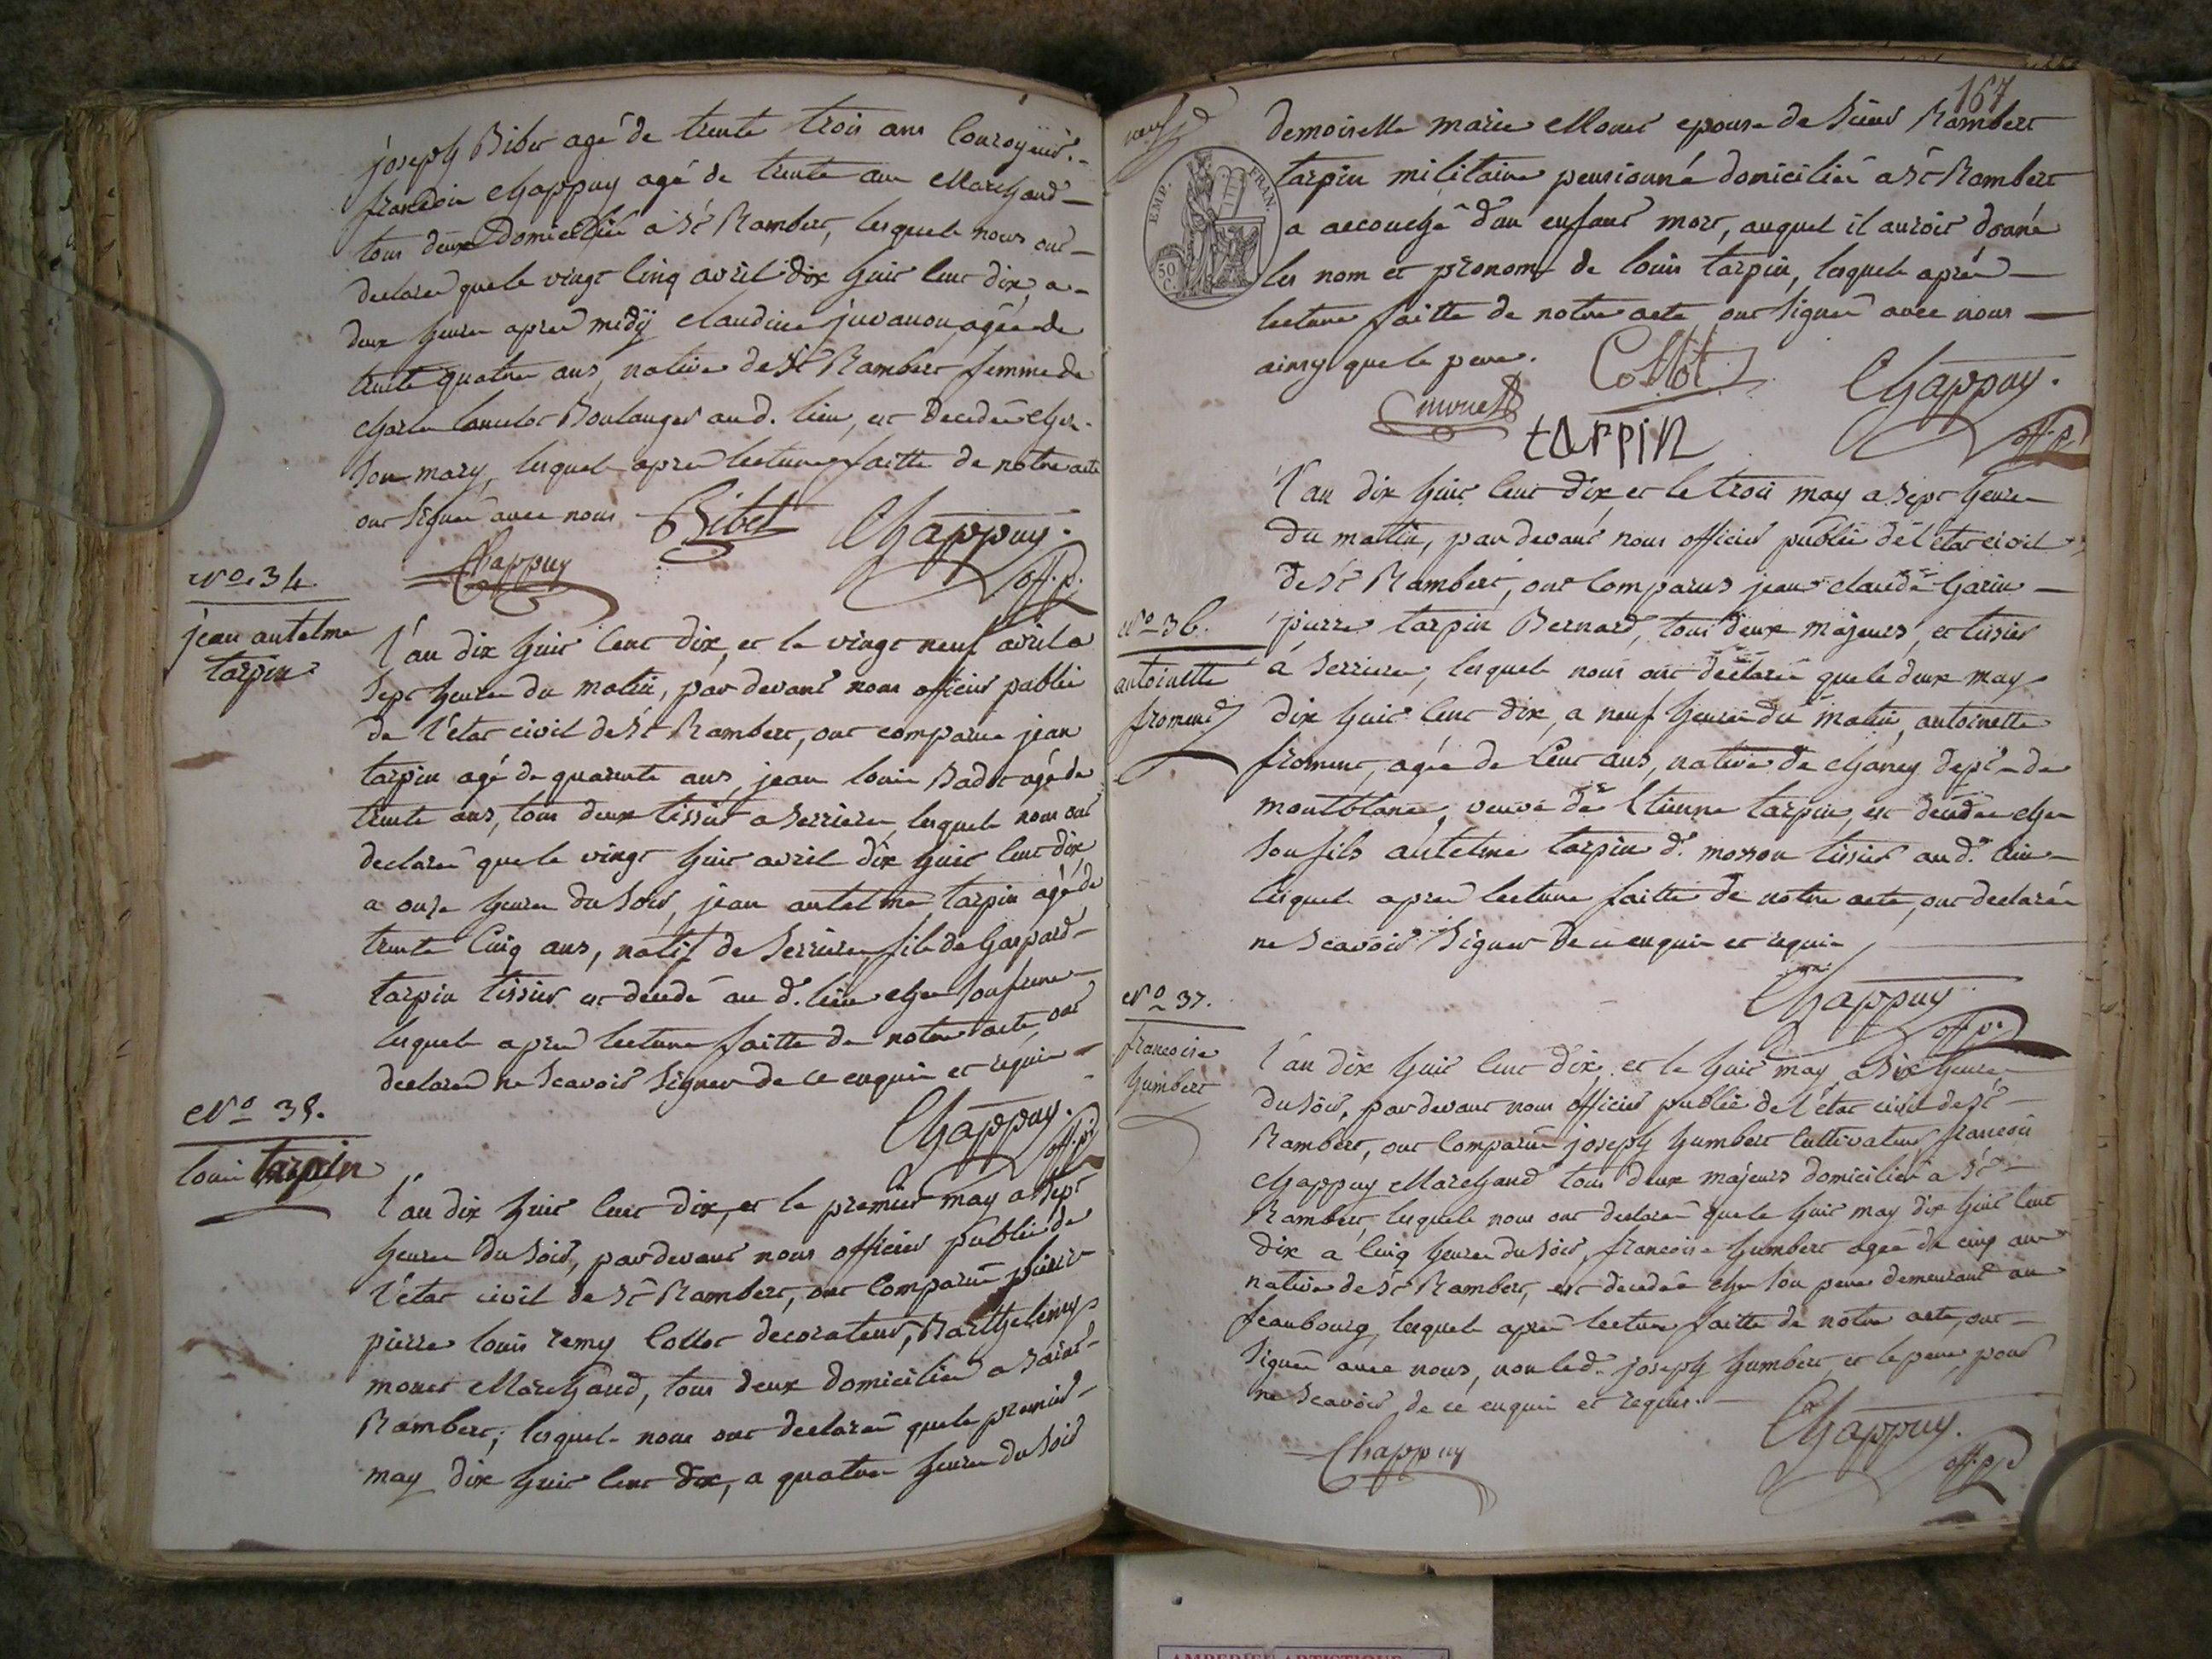 joseph Bibet agé de trente trois ans Couroyeur.-
francois Chappuy agé de trente ans Marchand-
tous deux Domiciliés a St Rambert, lesquels nous ont-
declaré que le vingt cinq avril dix huit cent dix, a-
deux heures apres midÿ claudine juvanon agée de
trente quatre ans, native de St Rambert femme de
charles Boulanger aud. lieu, est Decedée chez-
son mary, lesquels apres lecture faitte de notre acte
ont signés avec nous
Bibet Chappuy.
Chappuy off. p.
No. 34.
jean antelme
tarpin
L'an dix huit cent dix, et le vingt neuf avril a
sept heures du matin, par devant nous officier public
de l'état civil de St Rambert, ont comparus jean
tarpin agé de quarante ans, jean louis Badot agé de
trente ans, tous deux tissier a serrieres, lesquels nous ont
declarés que le vingt huit avril dix huit cent dix
a onze heures du soir, jean antelme tarpin agé de
trente Cinq ans, natif de serrieres fils de Gaspard-
tarpin tissier est decedé au d. lieu chez son frere-
lesquels apres lecture faitte de notre acte, ont
declarés ne scavoir signer de ce enquis et requis-
Chappuy.
off. p.
No 35.
louis tarpin
L'an dix huit cent dix, et le premier may a sept
heures du soir, par devant nous officier public de
l'état civil de St Rambert, ont comparus pierre
pierre louis remy Collot decorateur, Barthelemy
monet Marchand, tous deux domiciliés a saint-
Rambert, lesquels nous ont declarés que le premier-
may dix huit cent dix, a quatre heures du soir
167
EMP. FRAN.
50 C.
demoiselle marie Monet epouse de sieur Rambert
tarpin militaire pensionné domicilié a St Rambert
a accouchée d'un enfant mort, auquel il auroit donné
les nom et prenom de louis tarpin, lesquels aprés-
lecture faitte de notre acte ont signés avec nous-
ainsy que le pere.
Collot Chappuy.
monet
tarpin off. p.
L'an dix huit cent dix, et le trois may a sept heures
du matin, par devant nous officier public de l'état civil
de St Rambert, ont Comparus jean claude Garin-
No 36.
pierre tarpin Bernard, tous deux majeurs, et tissier
antoinette
froment
à serrieres, lesquels nous ont declarés que le deux may
dix huit cent dix, a neuf heures du matin, antoinette
froment, agée de Cent ans, native de chaney dept. de
montblanc, veuve de Etienne tarpin, est decedée chez
son fils antelme tarpin d. mosson tissier aud. lieu-
lesquels apres lecture faitte de notre acte, ont declarés
ne scavoir signer de ce enquis et requis
Chappuy
off. p.
No 37.
francoise
humbert
L'an dix huit cent dix, et le huit may, a six heures
du soir, par devant nous officier public de l'état civil de St-
Rambert, ont Comparus joseph humbert Cultivateur, francois
chappuy Marchand tous deux majeurs domiciliés a St-
Rambert, lesquels nous ont declarés que le huit may dix huit cent
dix a cinq heures du soir, francoise humbert agée de cinq ans
native de St Rambert, est decedée chez son pere demeurant au
feaubourg, lesquels aprés lecture faitte de notre acte, ont-
signés avec nous, non led. joseph humbert et le pere pour
ne scavoir de ce enquis et requis.-
Chappuy Chappuy.
off. p.